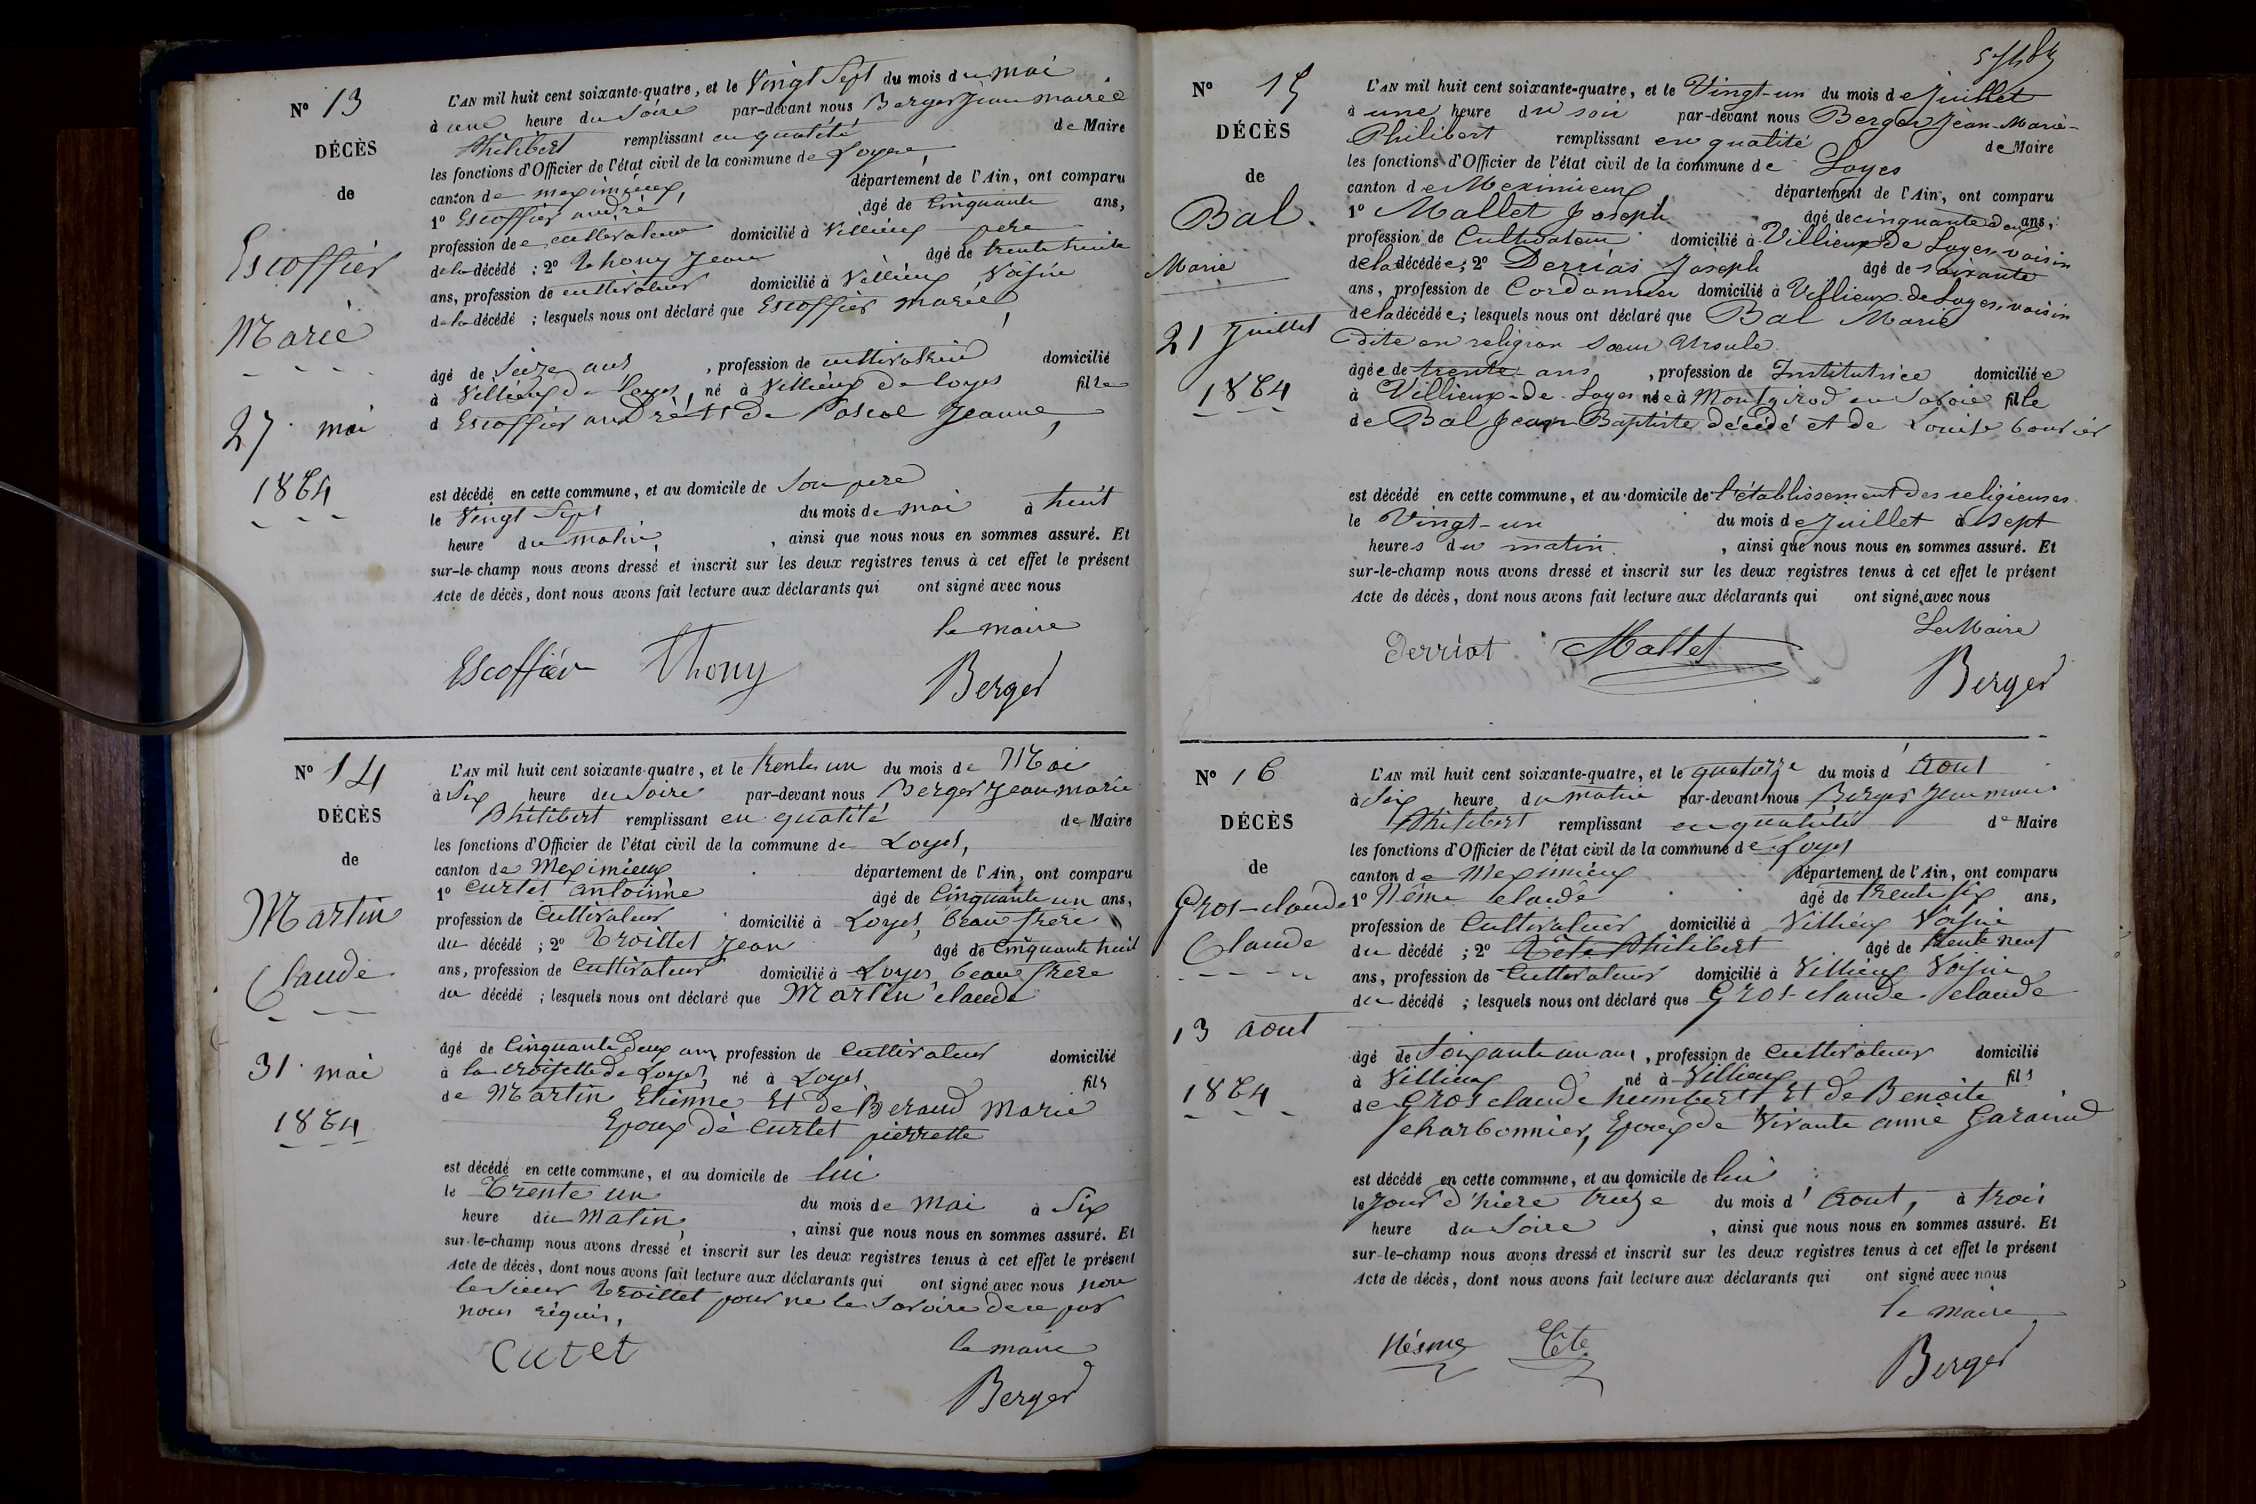 N° 13
DÉCÈS
de
Escoffier
Marie
27 mai
1864
L'AN mil huit cent soixante-quatre, et le Vingt Sept du mois de mai
à une heure du Soire par-devant nous Berger Jean marie
Philibert remplissant en qualité de Maire
les fonctions d'Officier de l'état civil de la commune de Loyes,
canton de meximieux, département de l'Ain, ont comparu
1° Escoffier andré, âgé de Cinquante ans,
profession de cultivateur domicilié à Villieux pere
de la décédé ; 2° Thony Jean âgé de trente huite
ans, profession de cultivateur domicilié à Villieux Voisin
de la décédé ; lesquels nous ont déclaré que Escoffier marie,
âgé de Seize ans , profession de cultivatrice domicilié
à Villieux de Loyes, né à Villieux de Loyes fille
d Escoffier andré et de Pascal Jeanne,
est décédé en cette commune, et au domicile de Son pere
le Vingt Sept du mois de mai à huit
heure du matin, , ainsi que nous nous en sommes assuré. Et
sur-le-champ nous avons dressé et inscrit sur les deux registres tenus à cet effet le présent
Acte de décès, dont nous avons fait lecture aux déclarants qui ont signé avec nous
le maire
Escoffier Thony Berger
N° 14
DÉCÈS
de
Martin
Claude
31 mai
1864
L'AN mil huit cent soixante-quatre, et le trente un du mois de Mai
à Six heure du Soire par-devant nous Berger Jean marie
Philibert remplissant en qualité de Maire
les fonctions d'Officier de l'état civil de la commune de Loyes,
canton de Meximieux département de l'Ain, ont comparu
1° Curtet antoinne âgé de Cinquante un ans,
profession de Cultivateur domicilié à Loyes, beau frere
du décédé ; 2° Troillet Jean âgé de Cinquante huit
ans, profession de Cultivateur domicilié à Loyes, beau frere
du décédé ; lesquels nous ont déclaré que Martin claude
âgé de Cinquante deux ans, profession de Cultivateur domicilié
à la croisette de Loyes, né à Loyes, fils
de Martin Etienne Et de Beraud Marie
Epoux de Curtet pierrette
est décédé en cette commune, et au domicile de lui
le Trente un du mois de Mai à Six
heure du Matin, , ainsi que nous nous en sommes assuré. Et
sur-le-champ nous avons dressé et inscrit sur les deux registres tenus à cet effet le présent
Acte de décès, dont nous avons fait lecture aux déclarants qui ont signé avec nous non
le Sieur Troillet pour ne le Savoire de ce par
nous réquis,
Cutet le maire
Berger
N° 15
DÉCÈS
de
Bal
Marie
21 Juillet
1864
L'AN mil huit cent soixante-quatre, et le Vingt-un du mois de Juillet
à une heure du soir par-devant nous Berger Jean-Marie-
Philibert remplissant en qualité de Maire
les fonctions d'Officier de l'état civil de la commune de Loyes
canton de Meximieux département de l'Ain, ont comparu
1° Mallet Joseph âgé de cinquante deux ans,
profession de Cultivateur domicilié à Villieux de Loyes, voisin
de la décédée ; 2° Derrias Joseph âgé de soixante
ans, profession de Cordonnier domicilié à Villieux-de Loyes, voisin
de la décédée ; lesquels nous ont déclaré que Bal Marie
dite en religion Sœur Ursule.
âgée de trente ans , profession de Institutrice domiciliée
à Villieux-de-Loyes née à Montgirod en Savoie fille
de Bal Jean Baptiste décédé et de Louise
est décédé en cette commune, et au domicile de l'établissement des religieuses
le Vingt-un du mois de Juillet à sept
heures du matin. , ainsi que nous nous en sommes assuré. Et
sur-le-champ nous avons dressé et inscrit sur les deux registres tenus à cet effet le présent
Acte de décès, dont nous avons fait lecture aux déclarants qui ont signé avec nous
Le Maire
Derriat Mallet Berger
N° 16
DÉCÈS
de
Gros-claude
Claude
13 aout
1864
L'AN mil huit cent soixante-quatre, et le quatorze du mois d'Aout
à Six heure du matin par-devant nous Berger Jean marie
Philibert remplissant en qualité de Maire
les fonctions d'Officier de l'état civil de la commune de Loyes
canton de Meximieux département de l'Ain, ont comparu
1° Néme claude âgé de trente six ans,
profession de Cultivateur domicilié à Villieux Voisin
du décédé ; 2° Tête Philibert âgé de trente neuf
ans, profession de Cultivateur domicilié à Villieux Voisin
du décédé ; lesquels nous ont déclaré que Gros-claude claude
âgé de Soixante un ans, profession de Cultivateur domicilié
à Villieux né à Villieux fils
de Gros claude humbert Et de Benoite
charbonnier, Epoux de Vivante anne Garaind
est décédé en cette commune, et au domicile de lui
le Jour d'hiere treize du mois d'Aout, à trois
heure du Soire , ainsi que nous nous en sommes assuré. Et
sur-le-champ nous avons dressé et inscrit sur les deux registres tenus à cet effet le présent
Acte de décès, dont nous avons fait lecture aux déclarants qui ont signé avec nous
le maire
Nésme Tête Berger